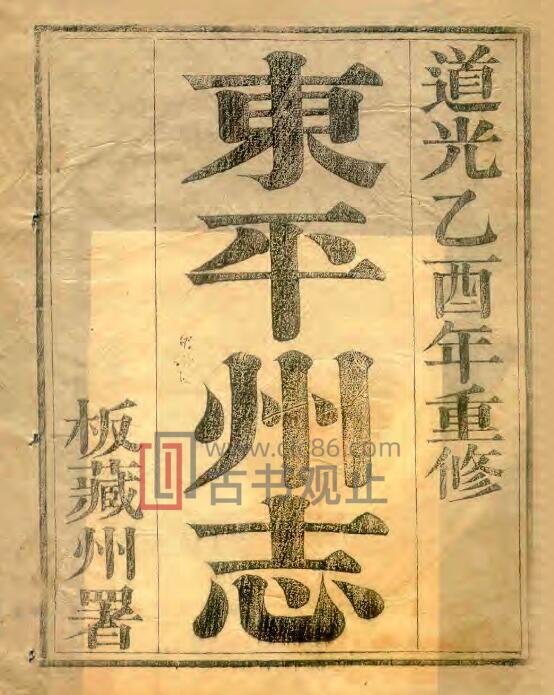 道光乙酉年重修
東平州志
板藏州署
www.gs86.com
古书观止